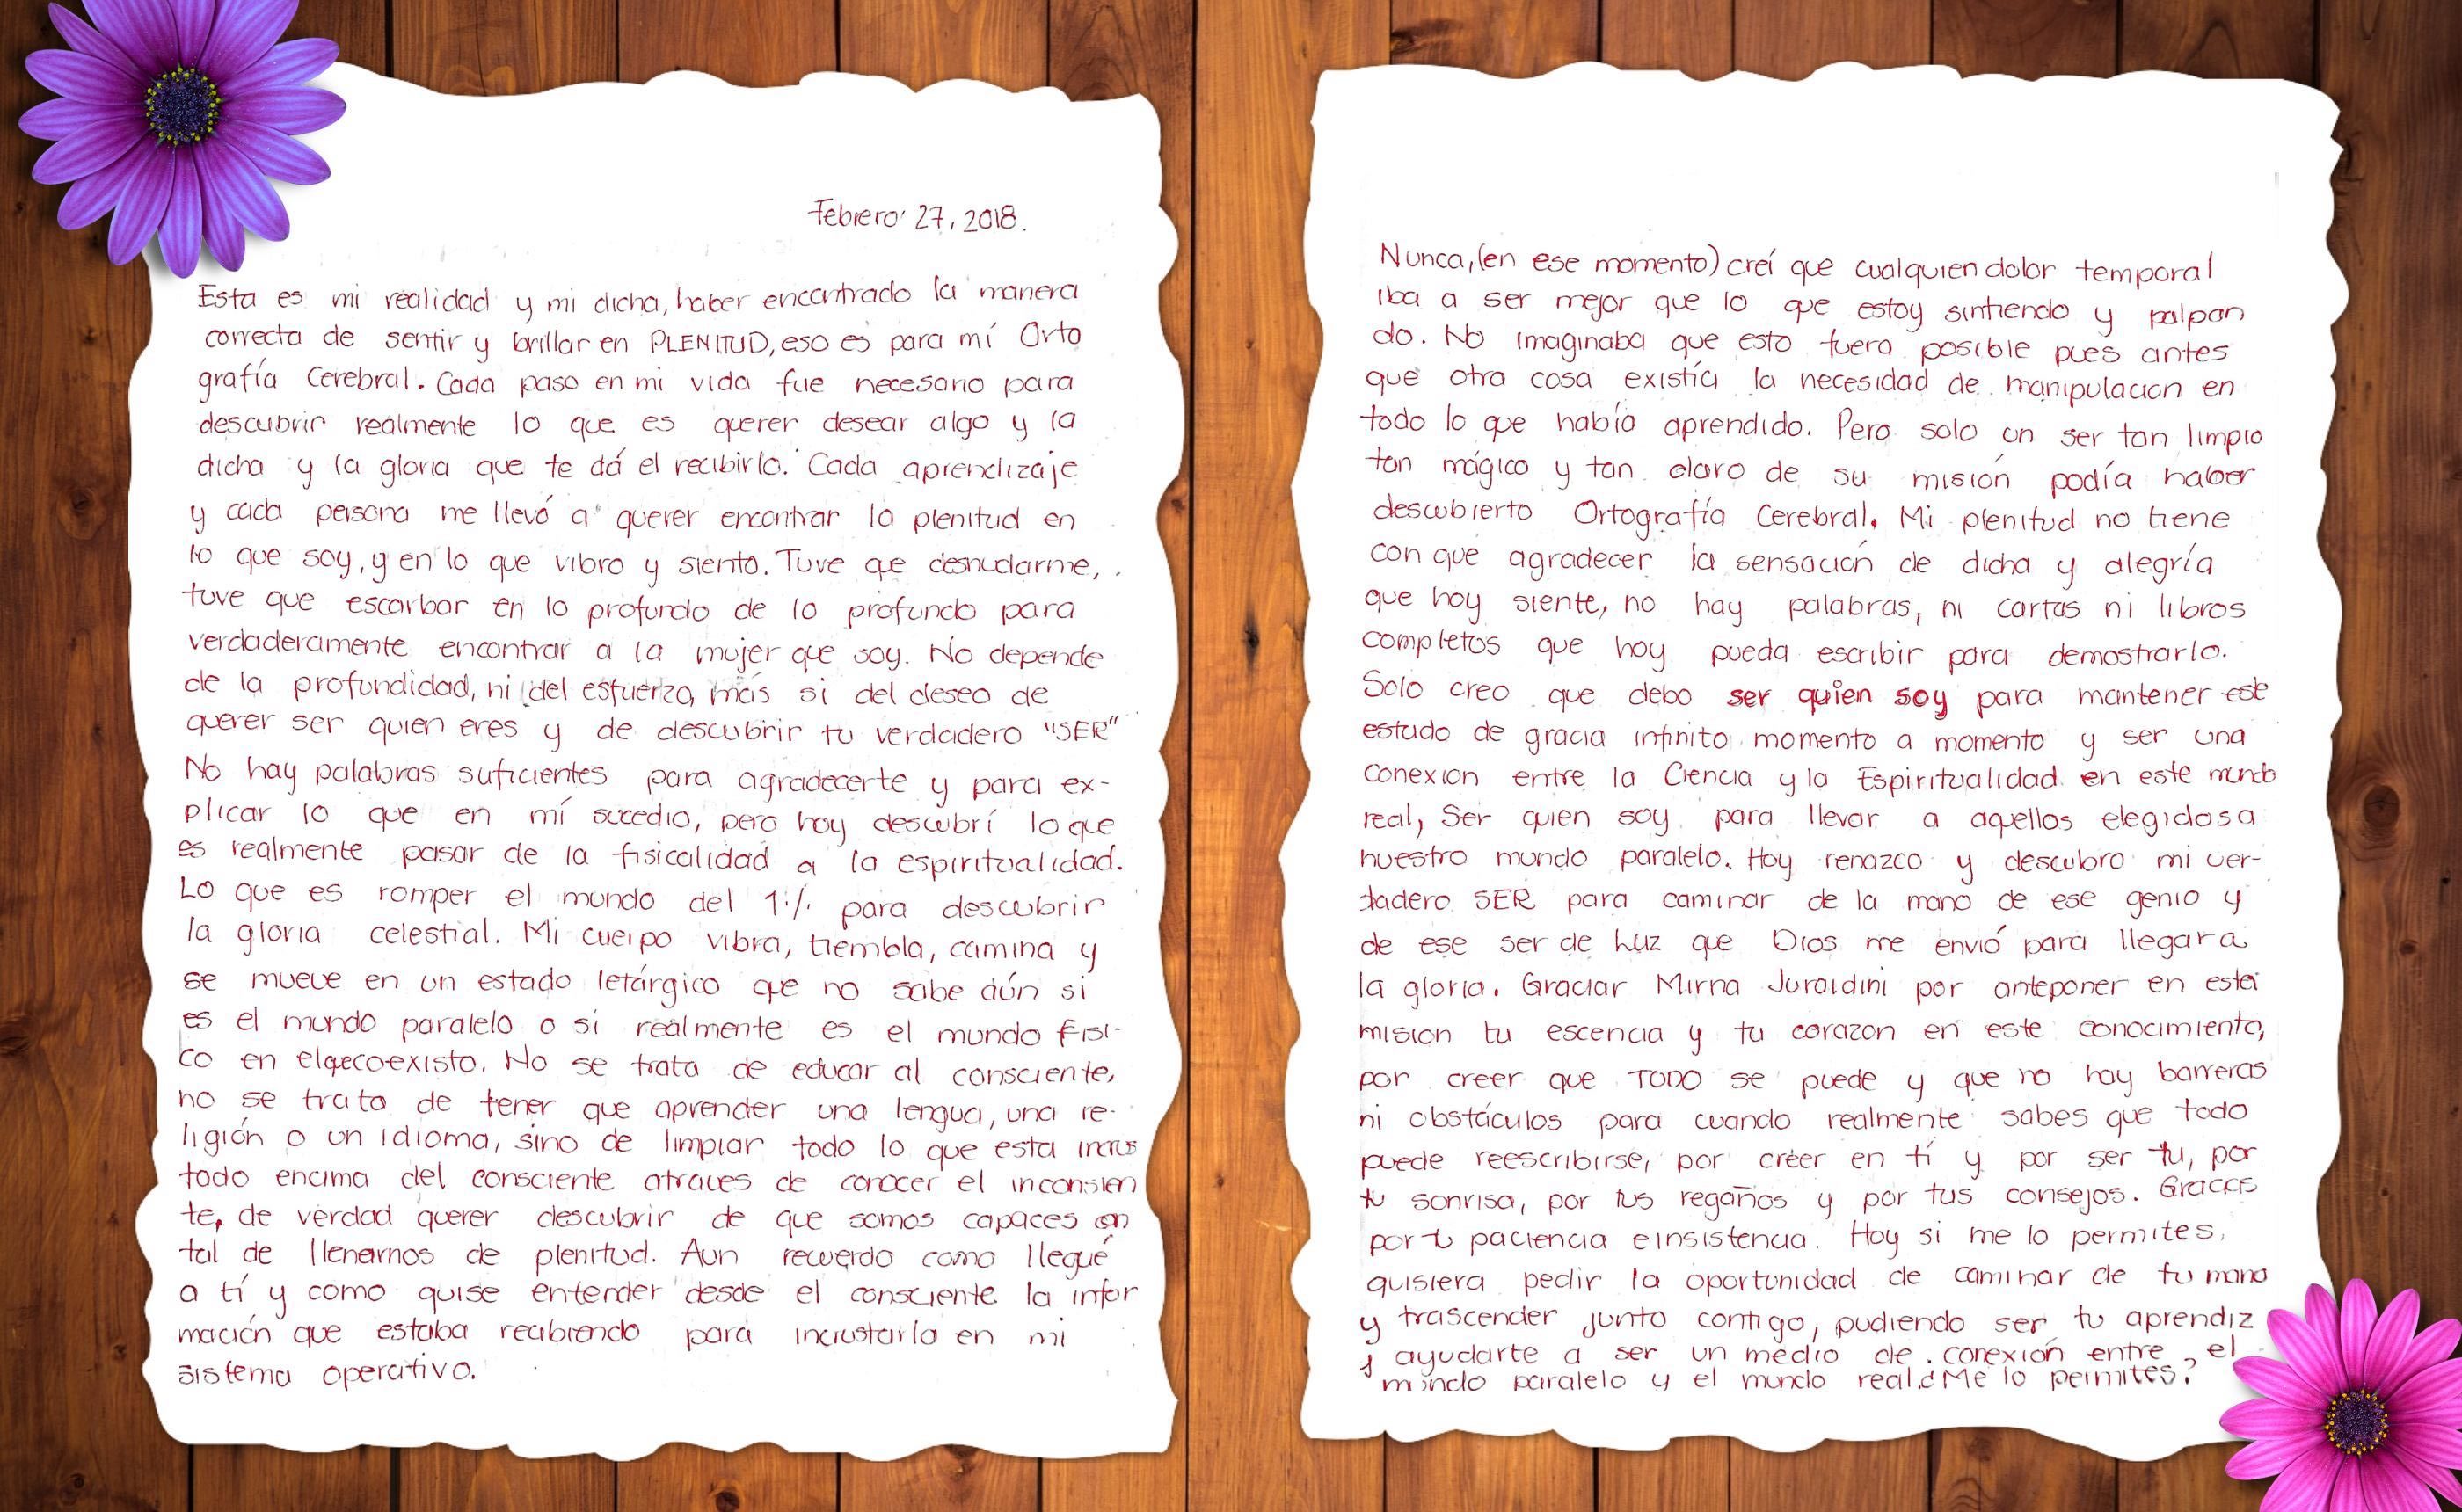 Febrero 27, 2018.
Esta es mi realidad y mi dicha, haber encontrado la manera
correcta de sentir y brillar en PLENITUD, eso es para mí Orto
grafía Cerebral. Cada paso en mi vida fue necesario para
descubrir realmente lo que es querer desear algo y la
dicha y la gloria que te dá el recibirlo. Cada aprendizaje
y cada persona me llevó a querer encontrar la plenitud en
lo que soy, y en lo que vibro y siento. Tuve que desnudarme,
tuve que escarbar en lo profundo de lo profundo para
verdaderamente encontrar a la mujer que soy. No depende
de la profundidad, ni del esfuerzo, más si del deseo de
querer ser quien eres y de descubrir tu verdadero "SER"
No hay palabras suficientes para agradecerte y para ex-
plicar lo que en mí sucedio, pero hoy descubrí lo que
es realmente pasar de la fisicalidad a la espiritualidad.
Lo que es romper el mundo del 1% para descubrir
la gloria celestial. Mi cuerpo vibra, tiembla, camina y
se mueve en un estado letárgico que no sabe aún si
es el mundo paralelo o si realmente es el mundo físi-
co en el que coexisto. No se trata de educar al consciente,
no se trata de tener que aprender una lengua, una re-
ligión o un idioma, sino de limpiar todo lo que esta incrus
todo encima del consciente atraves de conocer el inconsien
te, de verdad querer descubrir de que somos capaces con
tal de llenarnos de plenitud. Aun recuerdo como llegué
a tí y como quise entender desde el consciente la infor
mación que estaba recibiendo para incrustarla en mi
sistema operativo.
Nunca, (en ese momento) creí que cualquien dolor temporal
iba a ser mejor que lo que estoy sintiendo y palpan
do. No imaginaba que esto fuera posible pues antes
que otra cosa existía la necesidad de manipulacion en
todo lo que había aprendido. Pero solo un ser tan limpio
tan mágico y tan claro de su misión podía haber
descubierto Ortografía Cerebral. Mi plenitud no tiene
con qué agradecer la sensación de dicha y alegría
que hoy siente, no hay palabras, ni cartas ni libros
completos que hoy pueda escribir para demostrarlo.
Solo creo que debo ser quien soy para mantener este
estado de gracia infinito momento a momento y ser una
conexion entre la Ciencia y la Espiritualidad en este mundo
real, Ser quien soy para llevar a aquellos elegidos a
nuestro mundo paralelo. Hoy renazco y descubro mi ver-
dadero SER para caminar de la mano de ese genio y
de ese ser de luz que Dios me envió para llegar a
la gloria. Graciar Mirna Juraidini por anteponer en esta
mision tu escencia y tu corazon en este conocimiento,
por creer que TODO se puede y que no hay barreras
ni obstáculos para cuando realmente sabes que todo
puede reescribirse, por créer en tí y por ser tu, por
tu sonrisa, por tus regaños y por tus consejos. Gracias
por tu paciencia e insistencia. Hoy si me lo permites,
quisiera pedir la oportunidad de caminar de tu mano
y trascender junto contigo, pudiendo ser tu aprendiz
y ayudarte a ser un medio de conexión entre el
mundo paralelo y el mundo real. ¿Me lo permites?